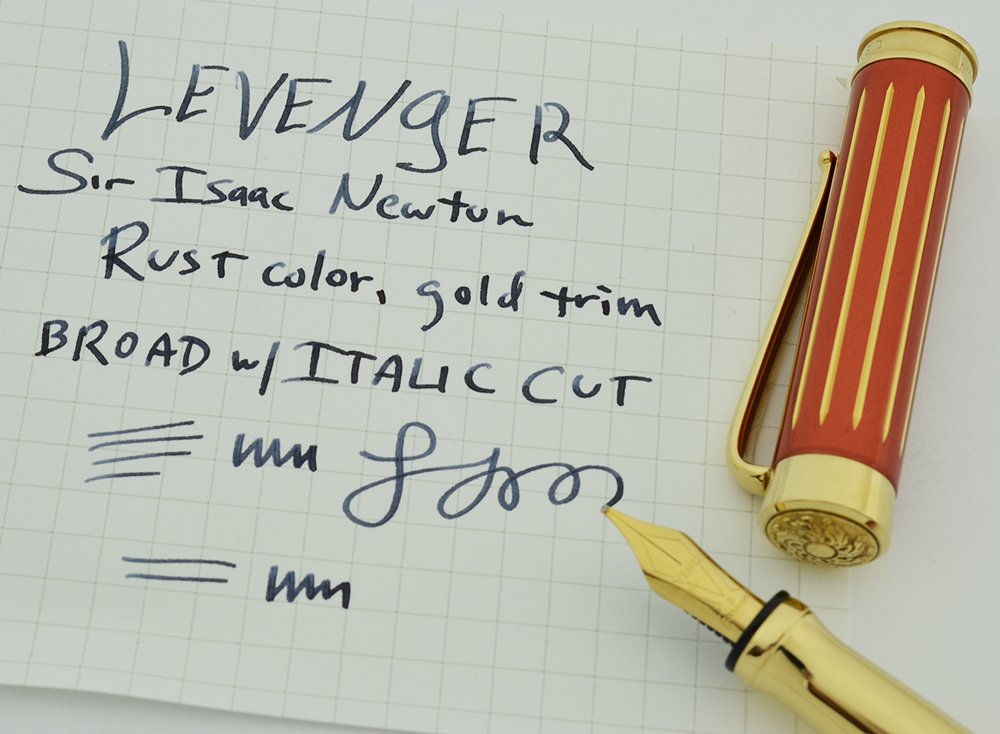 LEVENGER
Sir Isaac Newton
Rust color, gold trim
BROAD w/ ITALIC CUT